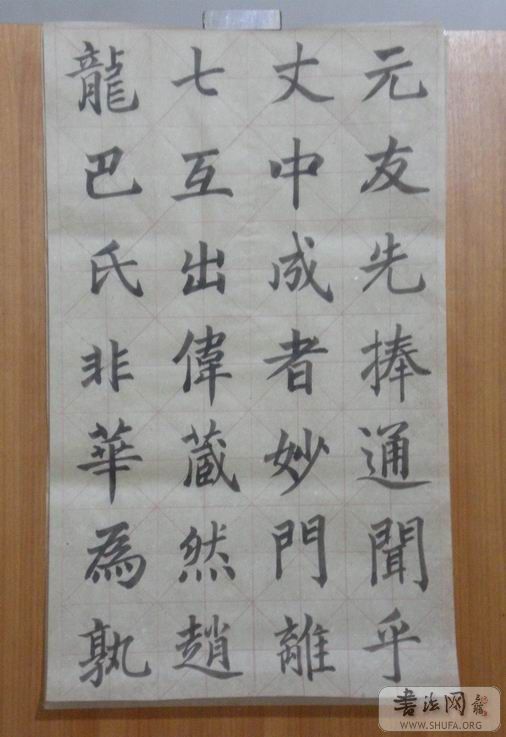 元友先捧通聞乎
丈中成者妙門離
七互出偉蔵然趙
龍巴氏非華為孰
书法网
WWW.SHUFA.ORG